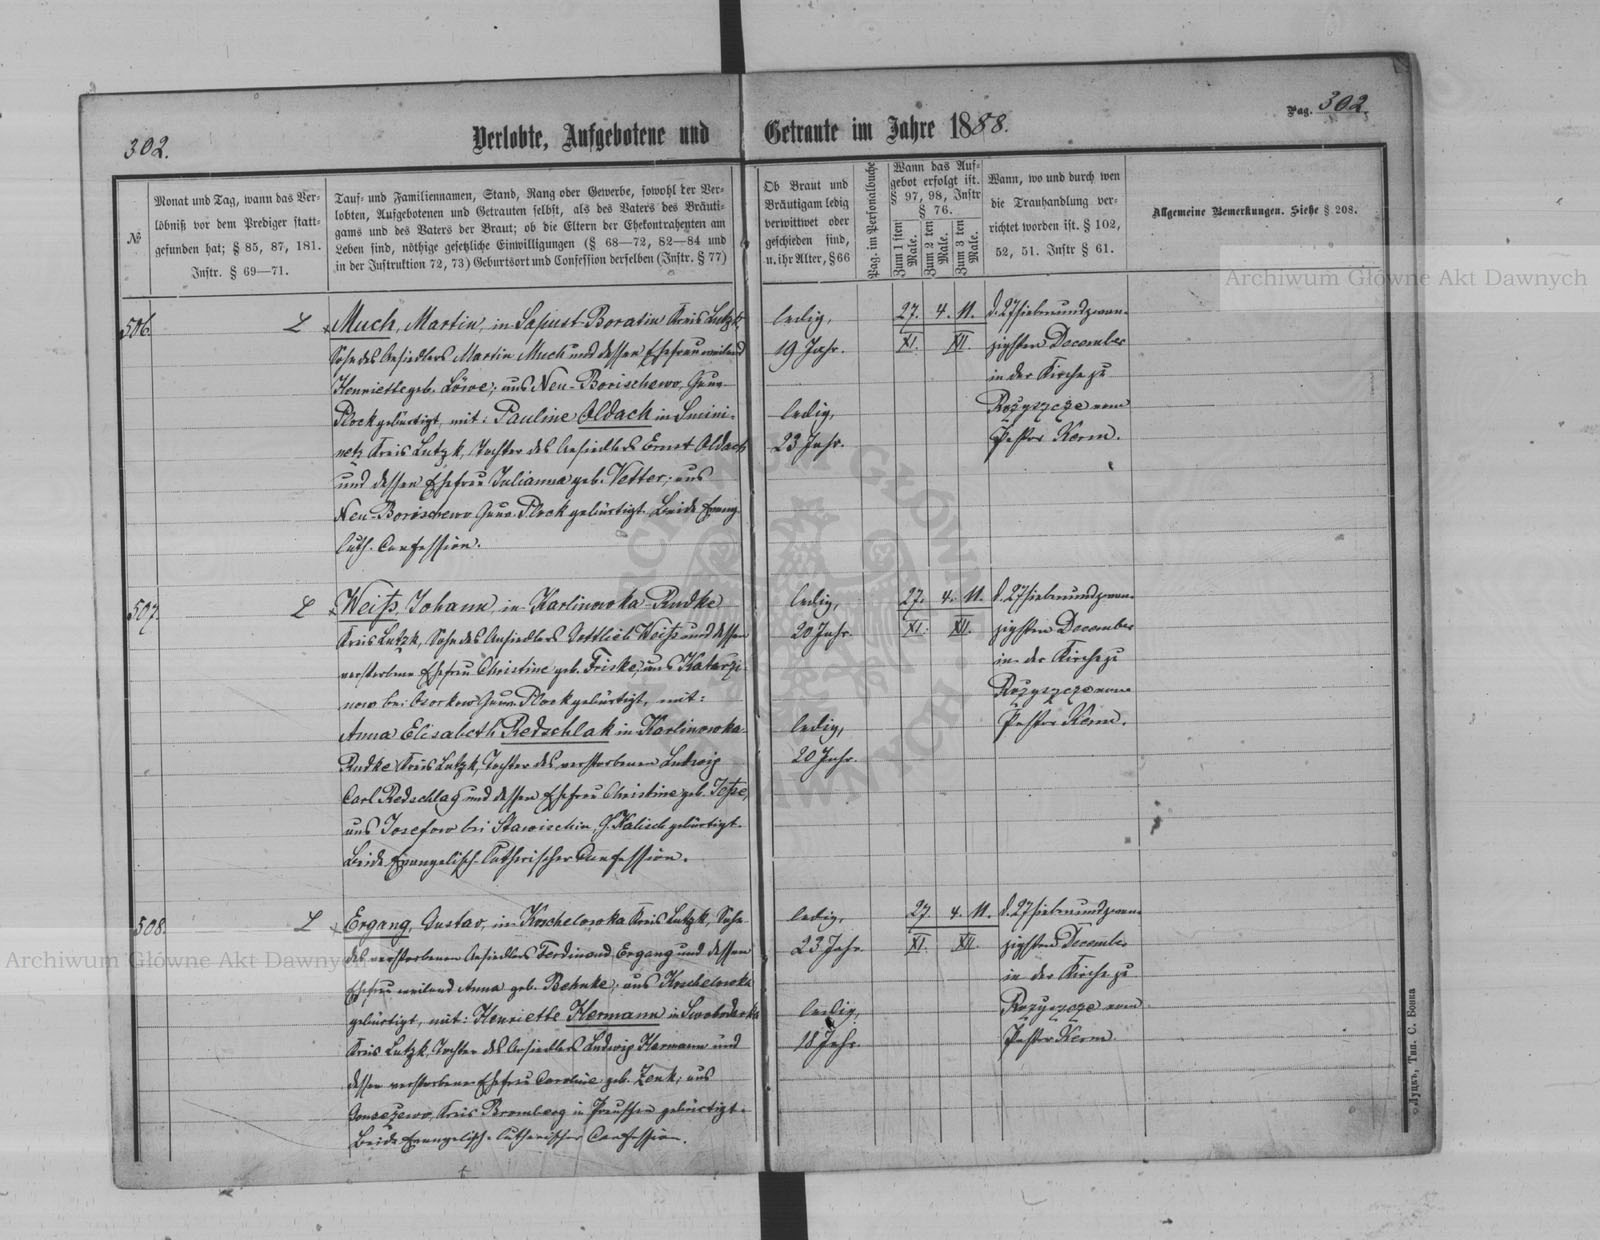 302.
Verlobte, Aufgebotene und Getraute im Jahre 1888.
Pag. 302.
№
Monat und Tag, wann das Ver-
löbniß vor dem Prediger statt-
gefunden hat; § 85, 87, 181.
Instr. § 69—71.
Tauf- und Familiennamen, Stand, Rang oder Gewerbe, sowohl der Ver-
lobten, Aufgebotenen und Getrauten selbst, als des Vaters des Bräuti-
gams und des Vaters der Braut; ob die Eltern der Ehekontrahenten am
Leben sind, nöthige gesetzliche Einwilligungen (§ 68—72, 82—84 und
in der Instruktion 72, 73) Geburtsort und Confession derselben (Instr. § 77)
Ob Braut und
Bräutigam ledig
verwittwet oder
geschieden sind,
u. ihr Alter, § 66
Pag. im Personalbuche
Wann das Auf-
gebot erfolgt ist.
§ 97, 98, Instr
§ 76.
Zum 1 sten
Male.
Zum 2 ten
Male.
Zum 3 ten
Male.
Wann, wo und durch wen
die Trauhandlung ver-
richtet worden ist. § 102,
52, 51. Instr § 61.
Allgemeine Bemerkungen. Siehe § 208.
506.
L
Much, Martin, in Sapust-Boratin Kreis Lutzk,
Sohn des Ansiedlers Martin Much und dessen Ehefrau weiland
Henriette geb. Löwe; aus Neu-Borischewo, Guv.
Plock gebürtigt, mit: Pauline Oldach in Smini-
netz Kreis Lutzk, Tochter des Ansiedlers Ernst Oldach
und dessen Ehefrau Julianna geb. Vetter; aus
Neu-Borischewo Guv. Plock gebürtigt. Beide Evang.
Luth. Confession.
ledig,
19 Jahr.
ledig,
23 Jahr.
27. 4. 11.
XI. XII.
d. 27 siebenundzwan-
zigsten December
in der Kirche zu
Rożyszcze vom
Pastor Kerm.
507.
L
Weiß, Johann, in Karlinowka-Rudke
Kreis Lutzk, Sohn des Ansiedlers Gottlieb Weiß und dessen
verstorbene Ehefrau Christine geb. Friske, aus Katarzi-
now bei Osorkow Guv. Plock gebürtigt, mit:
Anna Elisabeth Redschlak in Karlinowka
Rudke Kreis Lutzk, Tochter des verstorbenen Ludwig
Carl Redschlag und dessen Ehefrau Christine geb. Jeße,
aus Josefow bei Stawischin, G. Kalisch gebürtigt.
Beide Evangelisch-Lutherischer Confession.
ledig,
20 Jahr.
ledig,
20 Jahr.
27. 4. 11.
XI. XII.
d. 27 siebenundzwan-
zigsten December
in der Kirche zu
Rożyszcze vom
Pastor Kerm.
508.
L
Ergang, Gustav, in Koschelowka Kreis Lutzk, Sohn
des verstorbenen Ansiedlers Ferdinand Ergang und dessen
Ehefrau weiland Anna geb. Behnke; aus Koschelowka
gebürtigt, mit: Henriette Hermann in Swoboderka
Kreis Lutzk, Tochter des Ansiedlers Ludwig Hermann und
dessen verstorbenen Ehefrau Caroline geb. Zenk; aus
Kreis Bromberg in Preußen gebürtigt.
Beide Evangelisch-Lutherischer Confession.
ledig,
23 Jahr.
ledig,
18 Jahr.
27. 4. 11.
XI. XII.
d. 27 siebenundzwan-
zigsten December
in der Kirche zu
Rożyszcze vom
Pastor Kerm.
Луцкъ, Тип. С. Бонка
Archiwum Główne Akt Dawnych
Archiwum Główne Akt Dawnych